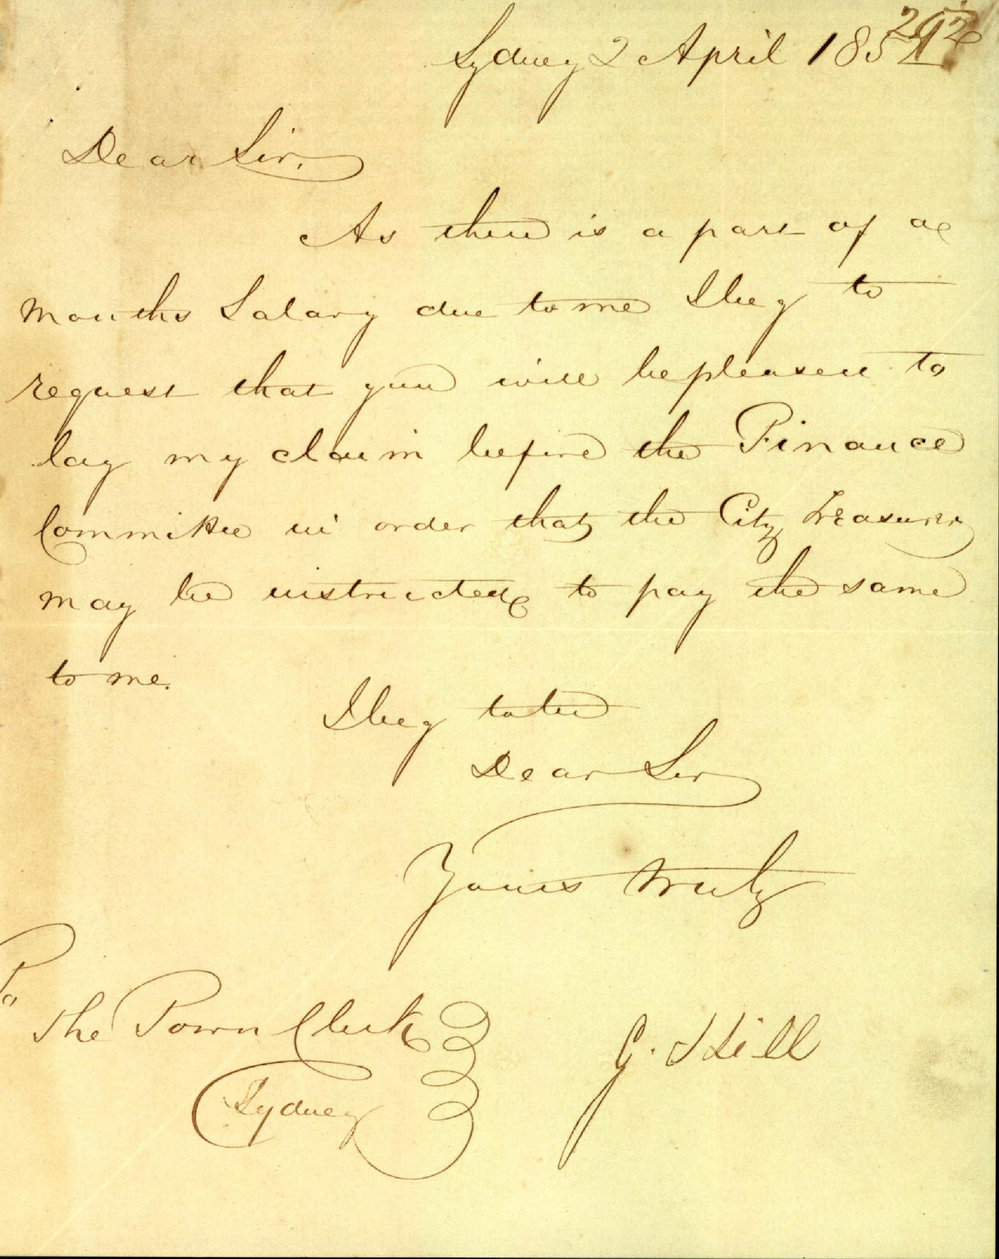 Sydney 2 April 185
292
Dear Sir,
As there is a part of a
months Salary due to me I beg to
request that you will be pleased to
lay my claim before the Finance
Committee in order that the City Treasurer
may be instructed to pay the same
to me.
I beg to be
Dear Sir
Yours truly
To
The Town Clerk
Sydney
G. Hill